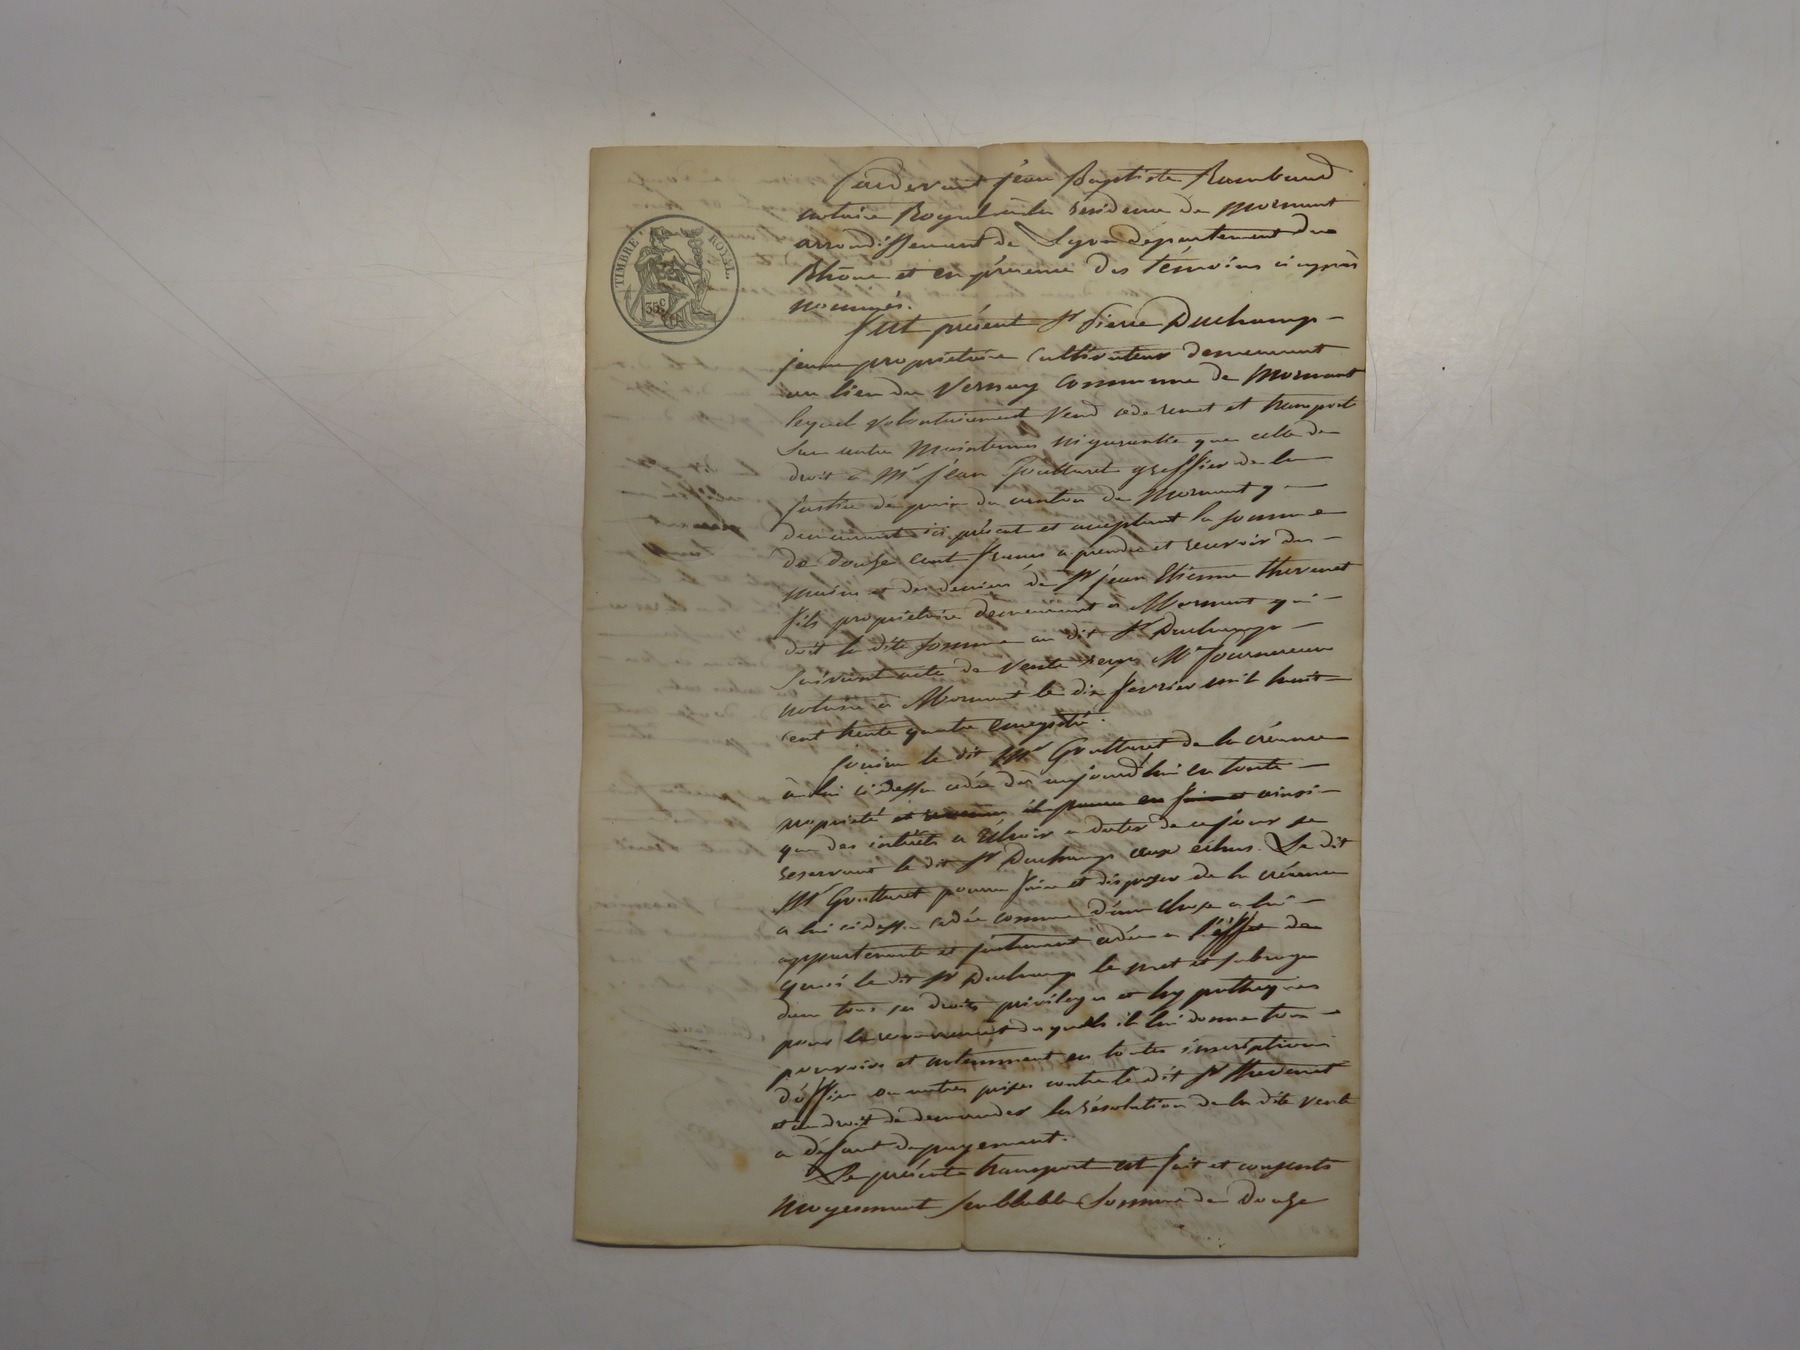 TIMBRE ROYAL
35c
Pardevant jean Baptiste Rambaud
notaire Royal à la résidence de Mornant
arrondissement de Lyon département du
Rhône et en présence des témoins ci après
nommés.
fut présent Sr Pierre Duchamp
jeune propriétaire Cultivateur demeurant
au lieu du Vernay Commune de Mornant
lequel volontairement Vend cède remet et transporte
Sans autre Maintenue ni garantie que celle de
droit à Mr jean Goutturet greffier de la
justice de paix du canton de Mornant y
demeurant ici présent et acceptant la somme
de douze cent francs à prendre et recevoir des
mains et des deniers de Sr jean Etienne thevenet
fils propriétaire demeurant à Mornant qui
doit la dite somme au dit Sr Duchamp
suivant acte de Vente reçu Me fournereau
notaire à Mornant le dix fevrier mil huit
cent trente quatre enregistré.
jouira le dit Mr Goutturet de la créance
à lui ci dessus cédée dès aujourd'hui en toute
propriété et ainsi
que des intérêts a Echoir a dater de ce jour se
reservant le dit Sr Duchamp ceux échus. Le dit
Mr Goutturet pourra faire et disposer de la créance
a lui ci dessus cédée comme d'une chose a lui
appartenante et justement cédée a l'éffet de
quoi le dit Sr Duchamp le met et subroge
dans tous ses droits privileges et hypotheques
pour le recouvrement desquels il lui donne tous
pouvoirs et notamment en toutes inscriptions
d'óffice ou autres prises contre le dit Sr thevenet
et au droit de demander la résolution de la dite vente
a défaut de payement.
Le présent transport est fait et consenti
moyennant semblable Somme de Douze